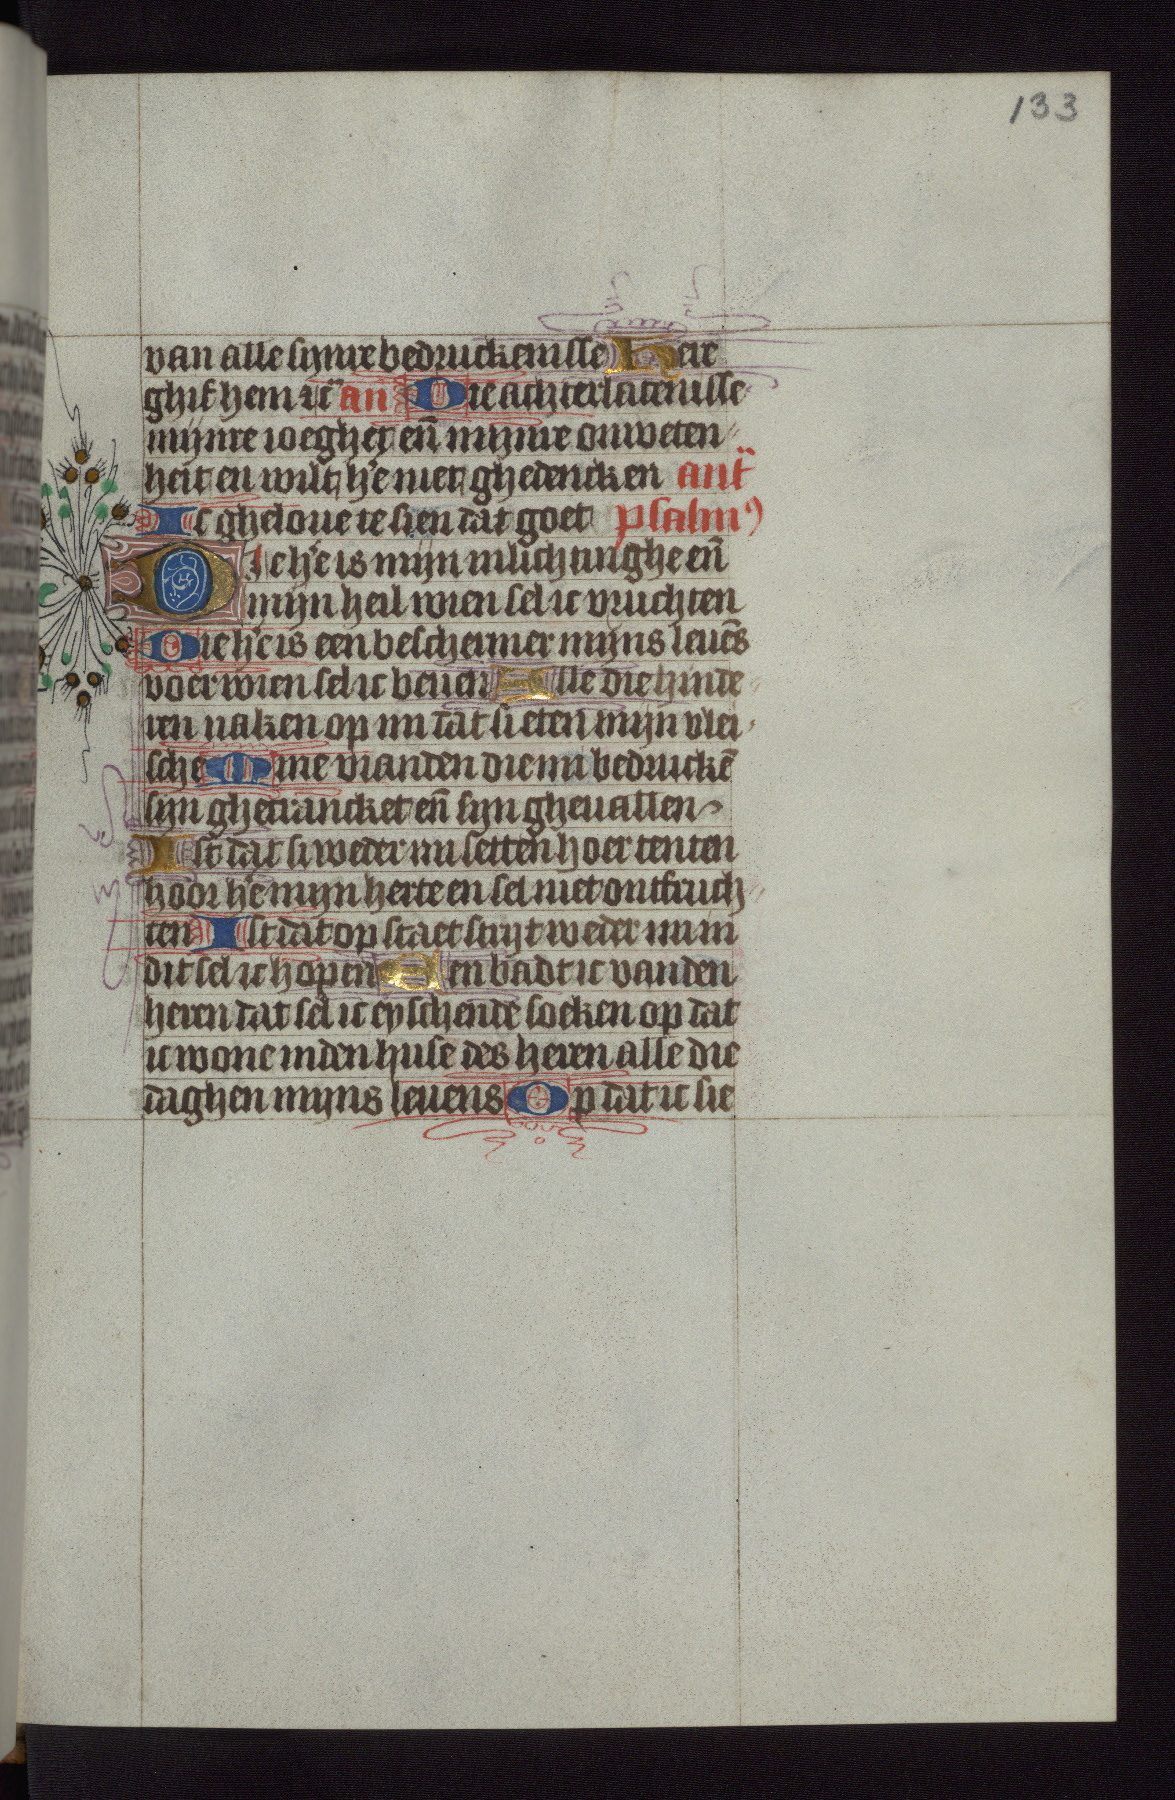 133
van alle synre bedruckenisse Here
ghif hem ⁊c̄ an Die achterlatenisse
mijnre ioeghet en̄ mijnre onweten
heit en wilt he niet ghedencken ant̄
Ic gheloue te sien dat goet psalm⁹
Die he is mijn inlichtinghe en̄
mijn heil wien sel ic vruchten
Die he is een beschermer mijns leuēs
voer wien sel ic beuen Alle die hinde
ren naken op mi dat si eten mijn vlei
sche Mine vianden die mi bedruckē
sijn ghecrancket en̄ sijn gheuallen
Ist dat si weder mi setten hoer tenten
hoor he mijn herte en sel niet ontfruch
ten Ist dat op staet strijt weder mi in
dit sel ic hopen Een badt ic van den
heren dat sel ic eyschende soeken op dat
ic wone inden huse des heren alle die
daghen mijns leuens Op dat ic sie